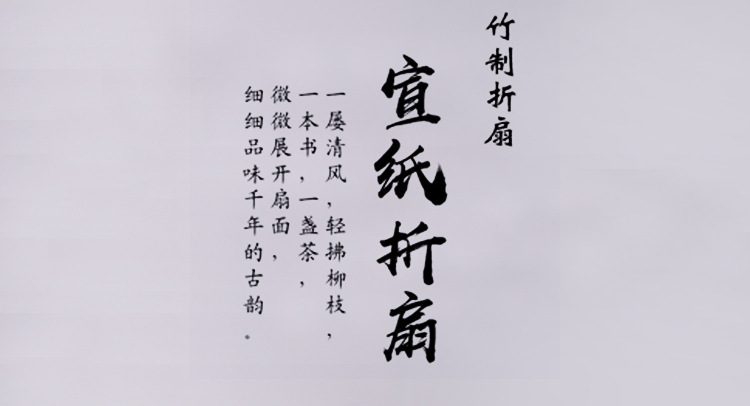 竹制折扇
宣纸折扇
一屡清风，轻拂柳枝，
一本书，一盏茶，
微微展开扇面，
细细品味千年的古韵。